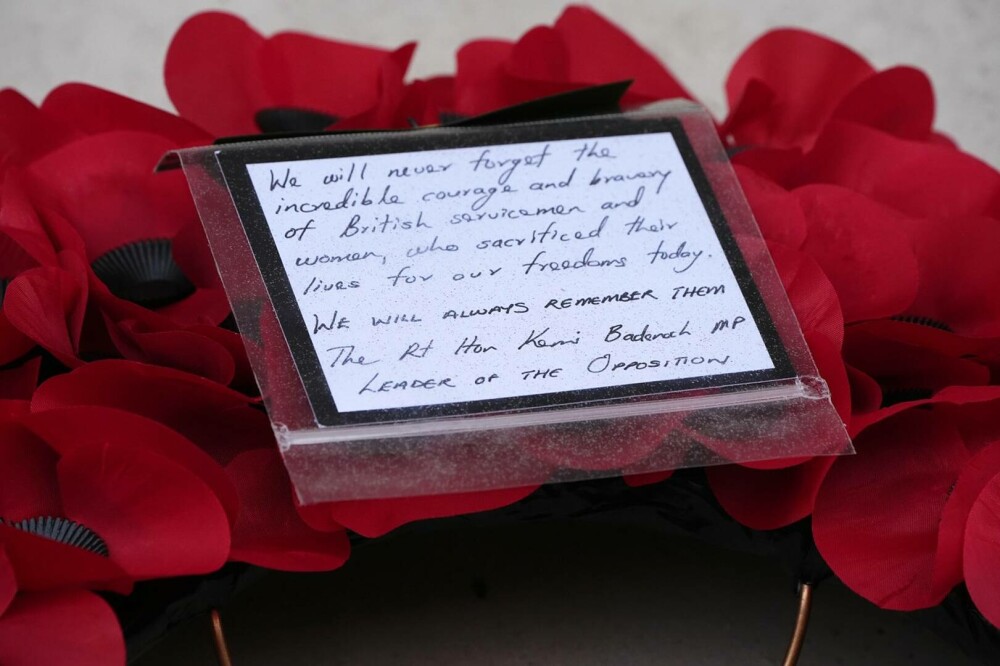 We will never forget the
incredible courage and bravery
of British servicemen and
women, who sacrificed their
lives for our freedoms today.
WE WILL ALWAYS REMEMBER THEM
The Rt Hon Kemi Badenoch MP
LEADER OF THE OPPOSITION